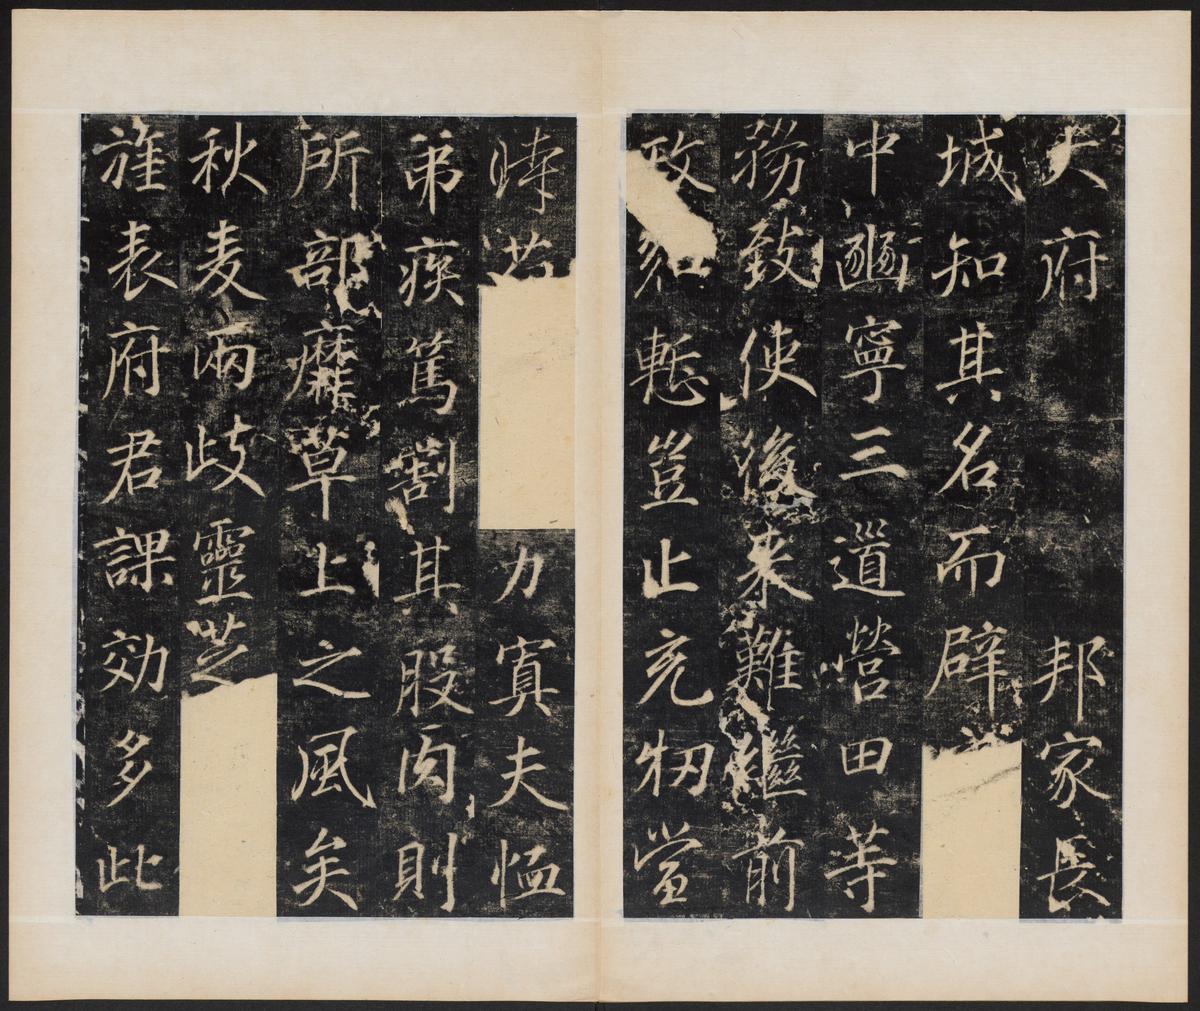 大府邦家長
城知其名而辟
中豳寧三道營田等
務致使後来難繼前
政慙豈止充牣當
時力寡夫恤
弟疾篤割其股肉則
所部靡草上之風矣
秋麦兩歧靈芝
旌表府君課効多此